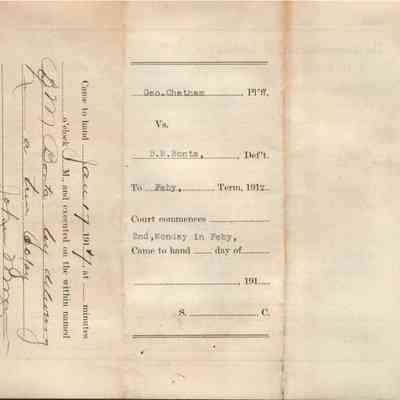 Geo.Chatham, Pl'ff.
Vs.
D.M.Bonta, Def't.
To Feby, Term, 1912
Court commences
2nd, Monday in Feby,
Came to hand day of
191
S. C.
Came to hand Jan 17 191 , at minutes
o'clock M., and executed on the within named
D M Bonta by delivering
a true copy
John